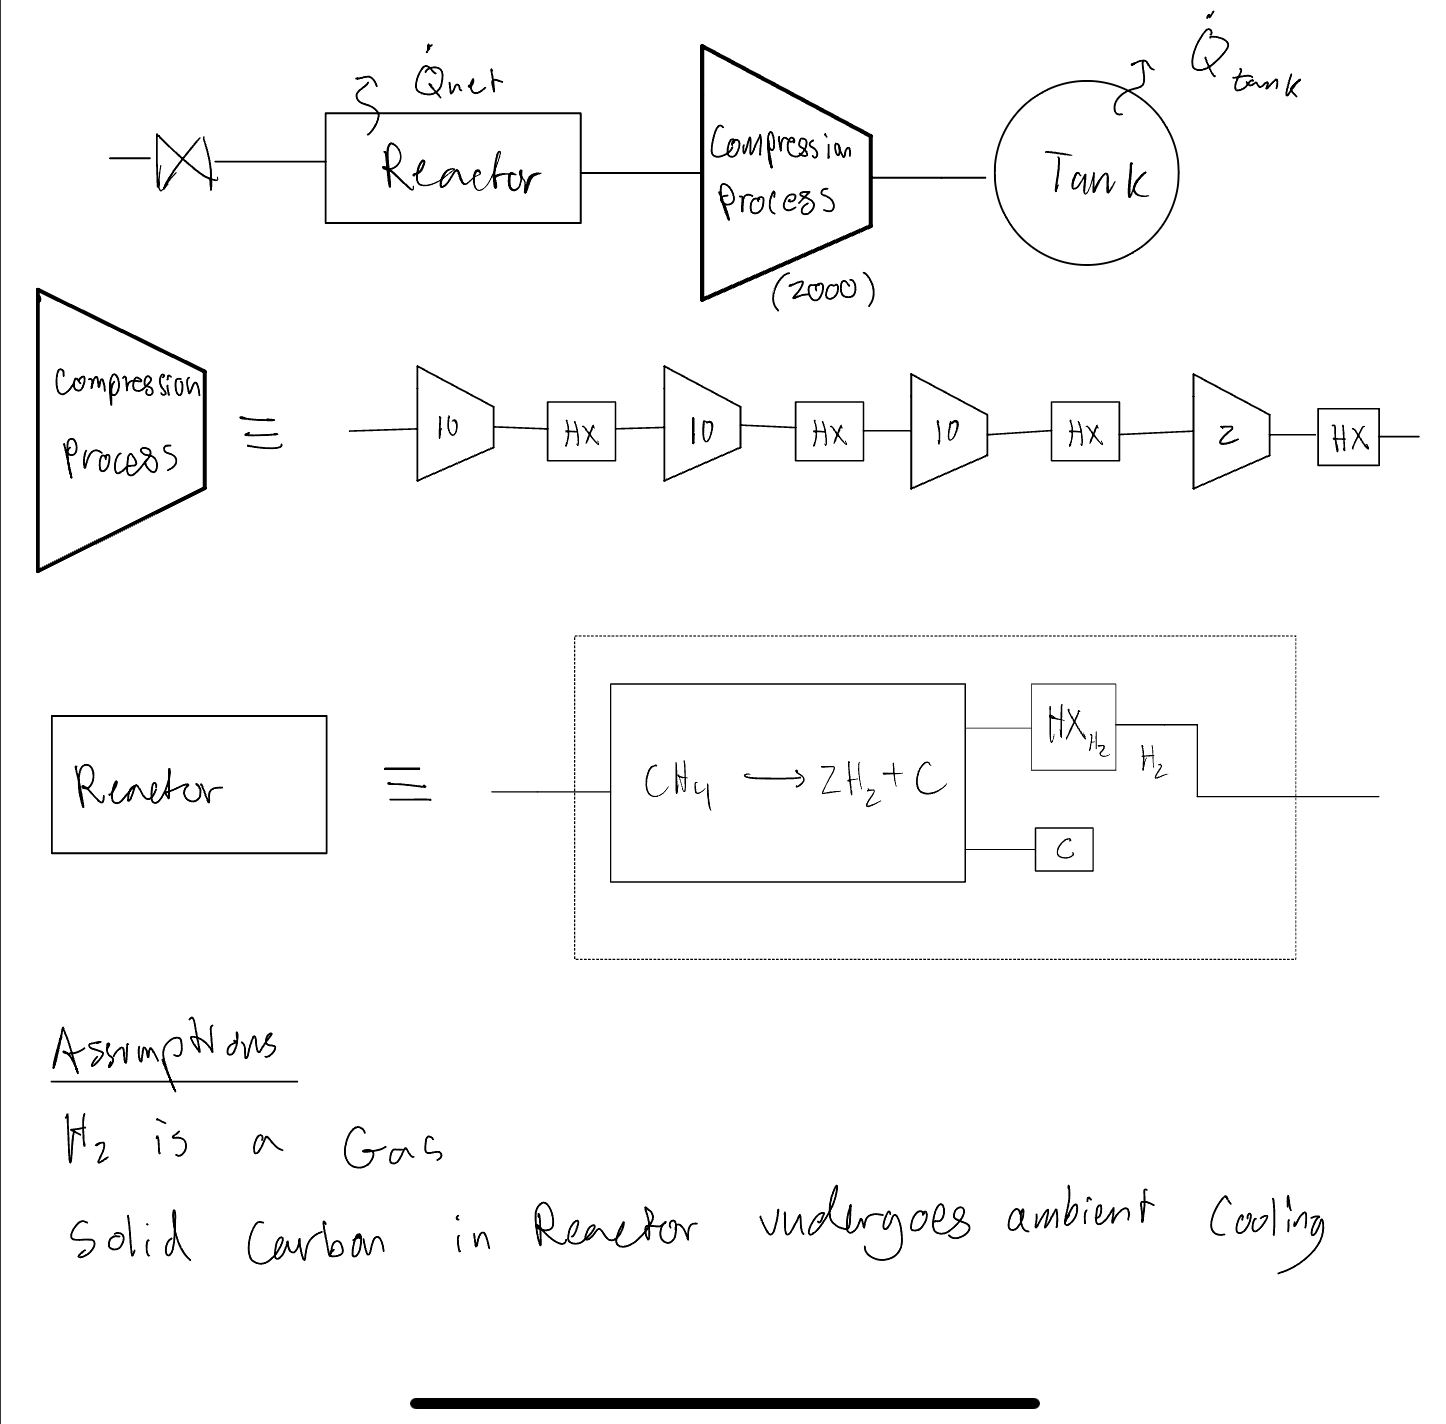 Q̇net
Q̇tank
Reactor
Compression
Process
(2000)
Tank
Compression
Process
≡
10
HX
10
HX
10
HX
2
HX
Reactor
≡
CH4 → 2H2 + C
HXH2
H2
C
Assumptions
H2 is a Gas
Solid Carbon in Reactor undergoes ambient Cooling